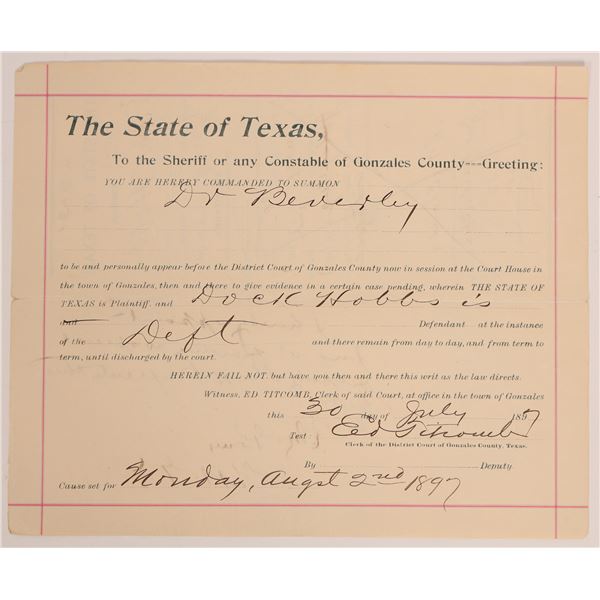 The State of Texas,
To the Sheriff or any Constable of Gonzales County---Greeting:
YOU ARE HEREBY COMMANDED TO SUMMON
Dr Beverley
to be and personally appear before the District Court of Gonzales County now in session at the Court House in
the town of Gonzales, then and there to give evidence in a certain case pending, wherein THE STATE OF
TEXAS is Plaintiff, and Dock Hobbs is
Defendant at the instance
of the Deft and there remain from day to day, and from term to
term, until discharged by the court.
HEREIN FAIL NOT, but have you then and there this writ as the law directs.
Witness, ED TITCOMB, Clerk of said Court, at office in the town of Gonzales
this 30 day of July 1897
Test: Ed Titcomb
Clerk of the District Court of Gonzales County, Texas.
By Deputy.
Cause set for Monday, Augst 2nd 1897